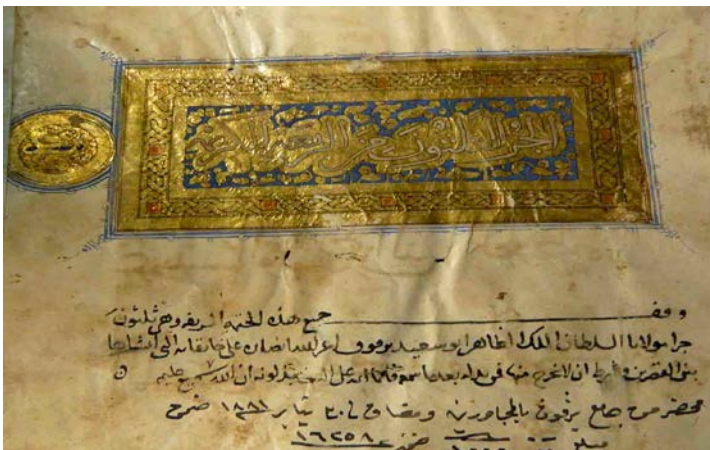 الجزء الثلاثون من الربعة الشريفة
وقف جميع هذه الختمة الشريفة وهي ثلثون
جزا مولانا السلطان الملك الظاهر ابو سعيد برقوق اعز الله انصاره على خانقاته التي انشاها
بين القصرين وشرط ان لا تخرج منها فمن بدله بعدما سمعه فانما اثمه على الذين يبدلونه ان الله سميع عليم
محضر من جامع برقوق بالمجاورين ومضاف في ٣٠ يناير ١٨٨١ ضمن
١٦٢٥٨